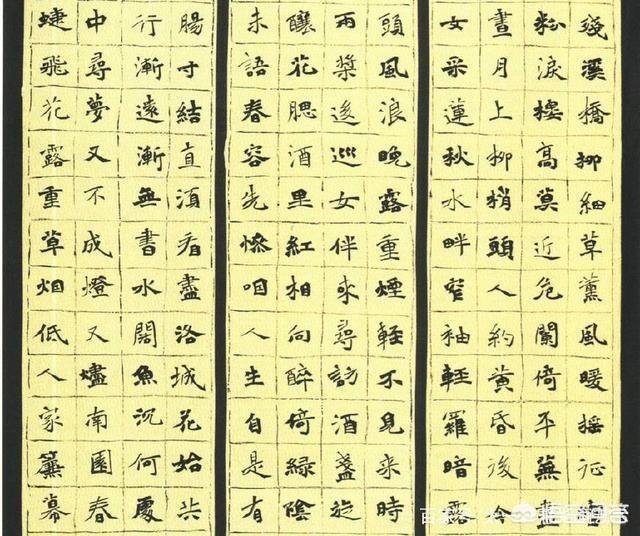 殘溪橋柳細草薰風暖搖征
粉淚樓高莫近危闌倚平蕪盡
晝月上柳梢頭人約黃昏後今
女采蓮秋水畔窄袖輕羅暗露
頭風浪晚露重煙輕不見來時
雨槳逡巡女伴來尋訪酒盞旋
釀花腮酒里紅相向醉倚綠陰
未語春容先慘咽人生自是有
腸寸結直須看盡洛城花始共
行漸遠漸無書水闊魚沉何處
中尋夢又不成燈又燼南園春
蜨飛花露重草烟低人家簾幕